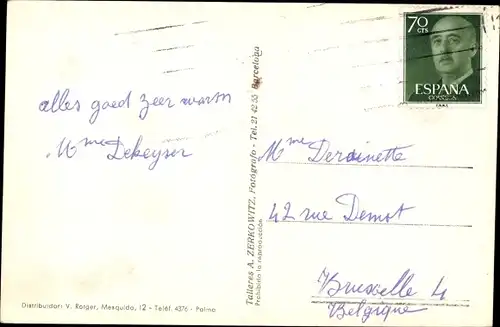 70
CTS
ESPAÑA
CORREOS
alles goed zeer warm
Mme Dekeyser
Mme Deroinette
42 rue Demot
Bruxelle 4
Belgique
Talleres A. ZERKOWITZ, Fotógrafo - Tel. 21 42 55 Barcelona
Prohibida la reproducción
Distribuidor: V. Rotger, Mesquida, 12 - Teléf. 4376 - Palma